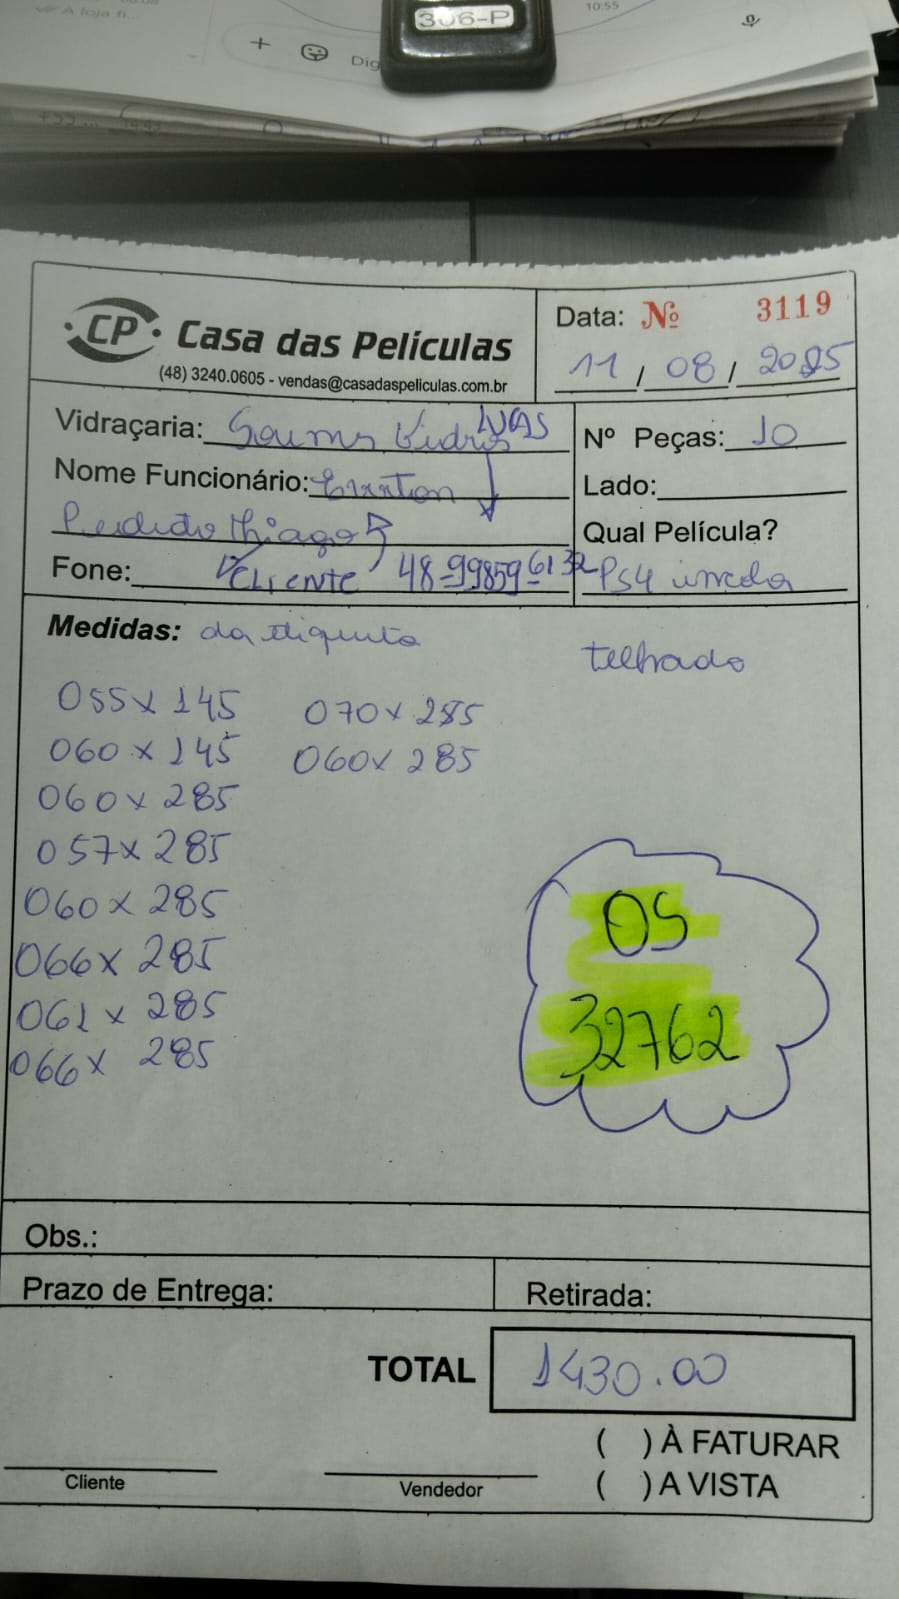 A loja fi...
10:55
Dig
306-P
CP Casa das Películas
(48) 3240.0605 - vendas@casadaspeliculas.com.br
Data: Nº 3119
11 / 08 / 2025
Vidraçaria:
Nº Peças: 10
Nome Funcionário:
Lado:
Pedido thiago
Qual Película?
Fone: CLIENTE 48-99859-6132
PS4 incolor
Medidas: da etiqueta
telhado
055 x 145 070 x 285
060 x 145 060 x 285
060 x 285
057 x 285
060 x 285
066 x 285
061 x 285
066 x 285
OS
32762
Obs.:
Prazo de Entrega: Retirada:
TOTAL 1430.00
( ) À FATURAR
( ) A VISTA
Cliente Vendedor